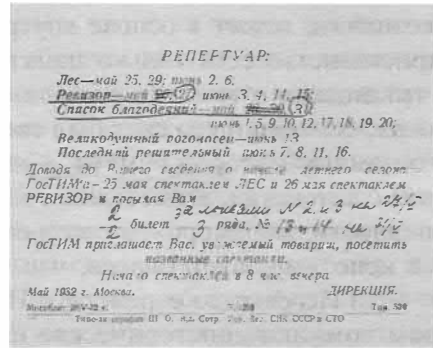 РЕПЕРТУАР:
Лес—май 25, 29; июнь 2, 6.
Ревизор—май 26, 27, июнь 3, 4, 14, 15;
Список благодеяний—май 31
июнь 1, 5, 9, 10, 12, 17, 18, 19, 20;
Великодушный рогоносец—июнь 13
Последний решительный июнь 7, 8, 11, 16.
Доводя до Вашего сведения о начале летнего сезона
ГосТИМ'а—25 мая спектаклем ЛЕС и 26 мая спектаклем
РЕВИЗОР и посылая Вам
за № 2 и 3 на 27/V
2 билет 3 ряда, № 13 и 14 на
ГосТИМ приглашает Вас, уважаемый товарищ, посетить
названные спектакли.
Начало спектаклей в 8 час. вечера
Май 1932 г. Москва. ДИРЕКЦИЯ.
Тир. 500
СНК СССР и СТО